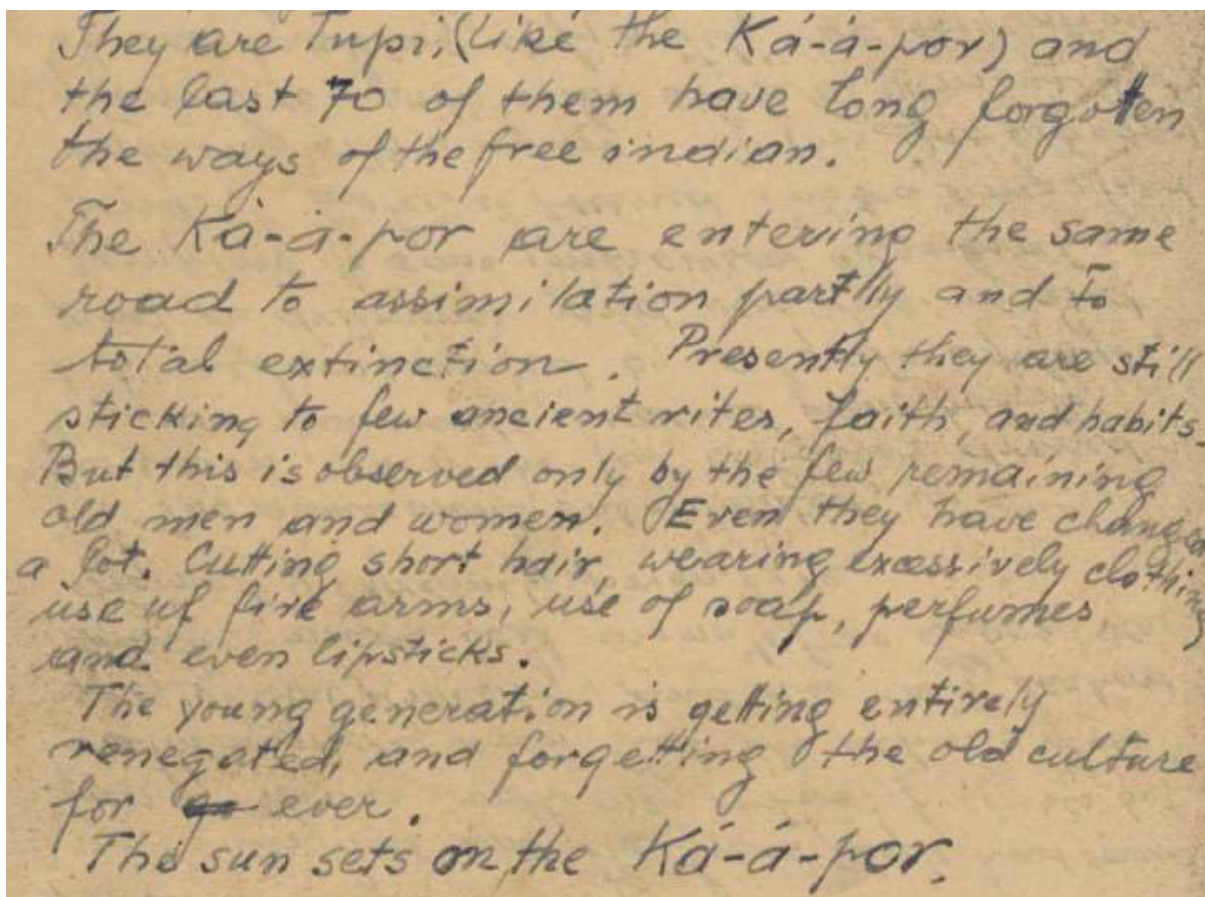 They are Tupi, (like the Ká-á-por) and
the last 70 of them have long forgotten
the ways of the free indian.
The Ká-á-por are entering the same
road to assimilation partly and to
total extinction. Presently they are still
sticking to few ancient rites, faith, and habits.
But this is observed only by the few remaining
old men and women. Even they have changed
a lot. Cutting short hair, wearing excessively clothing
use of fire arms, use of soap, perfumes
and even lipsticks.
The young generation is getting entirely
renegated, and forgetting the old culture
for ever.
The sun sets on the Ká-á-por.